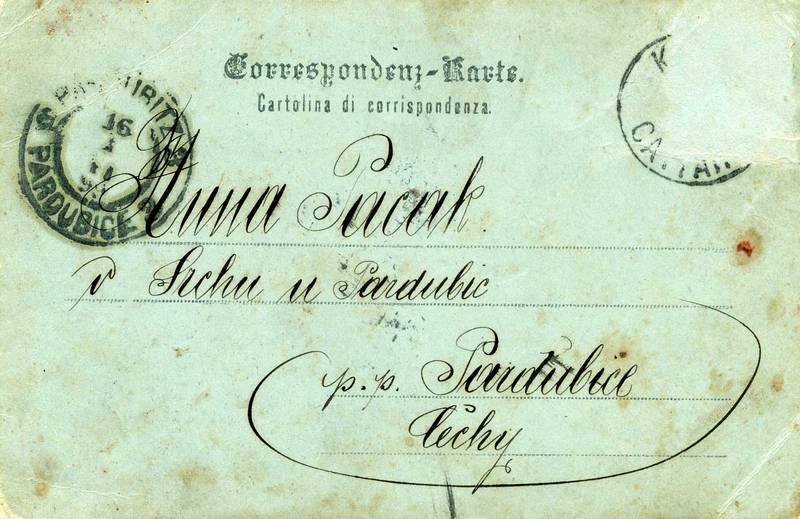 Correspondenz-Karte.
Cartolina di corrispondenza.
PARDUBITZ
16
PARDUBICE 2
CATTAR
Anna Pacak.
v Srchu u Pardubic
p.p. Pardubice
Čechy